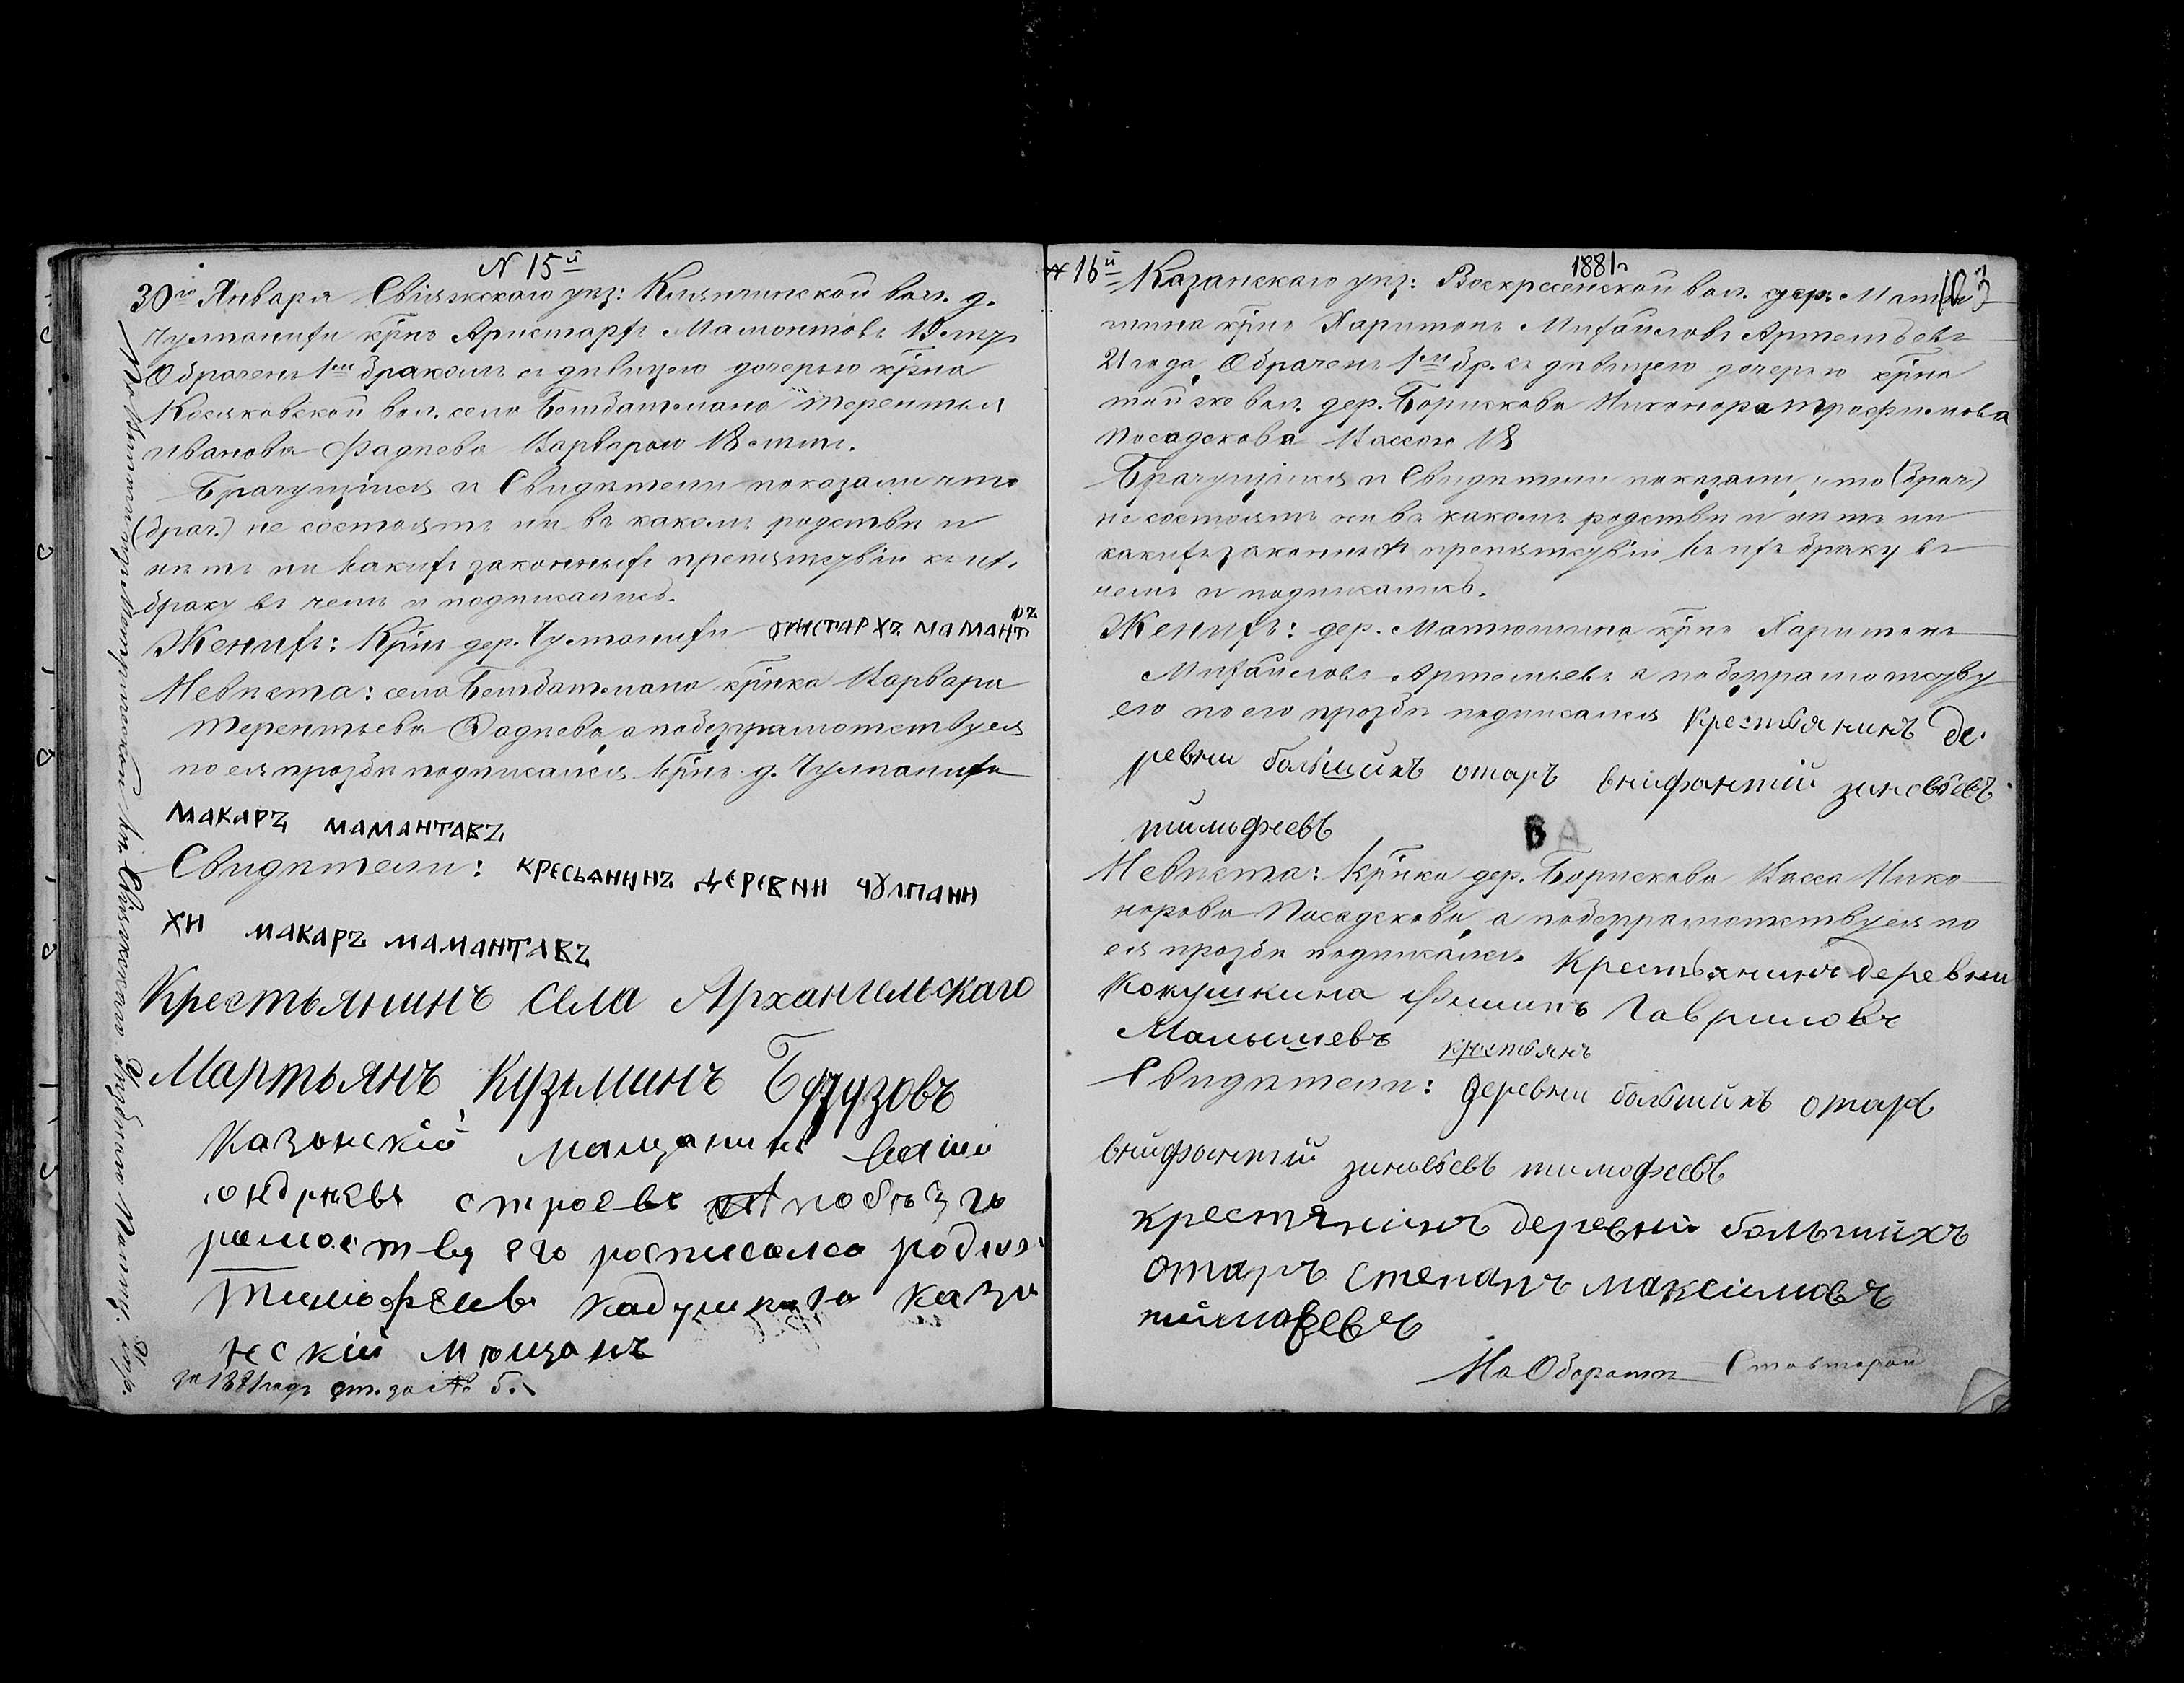 N 15й
30го Января Свіяжскаго уез: Ключищинской вол. д.
Чулпанихи крно Аристархъ Мамонтовъ 19 лету
Обрачен 1ым бракомъ съ девицею дочерью крна
вол. села Бетбатмана Терентья
Иванова Фадеева Варварою 18 лет.
Брачущіеся и Свидетели показали что
(брач.) не состоятъ ни въ какомъ родстве и
нетъ ни какихъ законныхъ препятствій къ их.
браку въ чемъ и подписались.
Женихъ: Крнъ дер. Чулпанихи аристархъ мамант
овъ
Невеста: села Бетбатмана крнка Варвара
Терентьева Фадеева, а по безграмотству ея
по ея прозбе подписался крнъ д. Чулпанихи
МАКАРЪ МАМАНТАВЪ
Свидетели: КРЕСЬАНИНЪ ДЕРЕВНИ ЧУЛПАНИ
ХИ МАКАРЪ МАМАНТАВЪ
Крестьянинъ села Архангельскаго
Мартьянъ Кузьминъ Бузузовъ
Казанскій мащанинъ
андреевъ строевъ побезг
рамоству его росписалса родион
Тимофеевъ кадушкина каза
нскій мющанъ
за 1881 годъ ст. за № 5.
№ 16й
1881г
103
Казанскаго уез: Воскресенской вол. дер. Матю
шина крнъ Харитонъ Михайловъ Артемьевъ
21 года, Обрачен 1ым бр. съ девицею дочерью крна
той же вол. дер. Борискова Никанора Трофимова
Посадскова Вассою 18
Брачущіися и Свидетели показали, что (брач)
не состоятъ ни въ какомъ родстве и нетъ ни
какихъ законныхъ препятствій къ ихъ браку въ
чемъ и подписались.
Женихъ: дер. Матюшина крнъ Харитонъ
Михайловъ Артемьевъ а по безграмотству
его по его прозбе подписался Крестьянинъ де.
ревни большихъ отаръ внифантій зиновьевъ
тимофеевъ
ВА
Невеста: крнка дер. Борискова Васса Нико
норова Посадскова, а по безграмотству ея по
ея прозбе подписался Крестьянинъ деревни
Кокушкина Филипъ Гавриловъ
Малышевъ
крестьянъ
Свидетели: Деревни большихъ отаръ
внифантій зиновьевъ тимофеевъ
крестянинъ деревни большихъ
отаръ степанъ максимовъ
тимофевъ
На Обороте Сто второй